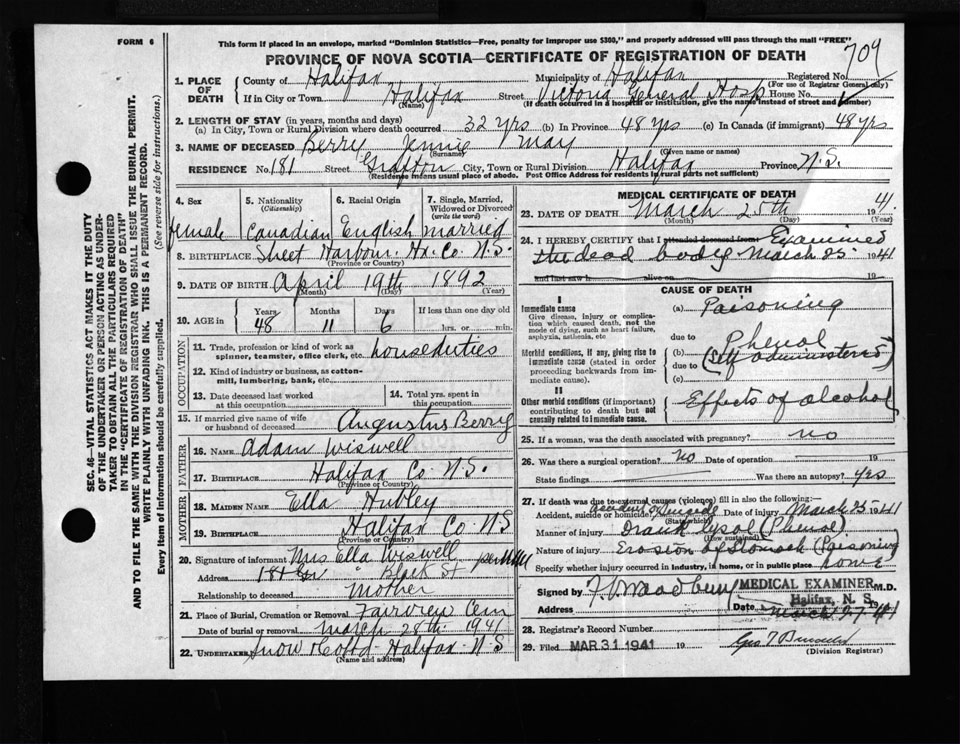 FORM 6
This form if placed in an envelope, marked "Dominion Statistics—Free, penalty for improper use $300," and properly addressed will pass through the mail "FREE"
PROVINCE OF NOVA SCOTIA—CERTIFICATE OF REGISTRATION OF DEATH
709
1. PLACE OF DEATH
County of Halifax Municipality of Halifax Registered No.
(For use of Registrar General only)
If in City or Town Halifax Street Victoria General Hosp House No.
(Name) (If death occurred in a hospital or institution, give the name instead of street and number)
2. LENGTH OF STAY (in years, months and days)
(a) In City, Town or Rural Division where death occurred 32 yrs (b) In Province 48 yrs (c) In Canada (if immigrant) 48 yrs
3. NAME OF DECEASED Berry Jennie May
(Surname) (Given name or names)
RESIDENCE No. 181 Street Grafton City, Town or Rural Division Halifax Province N.S.
(Residence means usual place of abode. Post Office Address for residents in rural parts not sufficient)
4. Sex 5. Nationality (Citizenship) 6. Racial Origin 7. Single, Married, Widowed or Divorced (write the word)
female Canadian English married
8. BIRTHPLACE Sheet Harbour Hx. Co. N.S.
(Province or Country)
9. DATE OF BIRTH April 19th 1892
(Month) (Day) (Year)
10. AGE in Years Months Days If less than one day old
48 11 6 hrs. or min.
OCCUPATION
11. Trade, profession or kind of work as spinner, teamster, office clerk, etc. houseduties
12. Kind of industry or business, as cotton-mill, lumbering, bank, etc.
13. Date deceased last worked at this occupation 14. Total yrs. spent in this occupation
15. If married give name of wife or husband of deceased Augustus Berry
FATHER
16. NAME Adam Wiswell
17. BIRTHPLACE Halifax Co N.S.
(Province or Country)
MOTHER
18. MAIDEN NAME Ella Hubley
19. BIRTHPLACE Halifax Co N.S
(Province or Country)
20. Signature of informant Mrs Ella Wiswell per
Address Black St
Relationship to deceased Mother
21. Place of Burial, Cremation or Removal Fairview Cem
Date of burial or removal March 28th 1941
22. UNDERTAKER Snow & Co Ltd - Halifax - N.S
(Name and address)
MEDICAL CERTIFICATE OF DEATH
23. DATE OF DEATH March 25th 1941
(Month) (Day) (Year)
24. I HEREBY CERTIFY that I attended deceased from Examined
the dead body March 25 1941
and last saw h alive on 19
CAUSE OF DEATH
I
Immediate cause
Give disease, injury or complication which caused death, not the mode of dying, such as heart failure, asphyxia, asthenia, etc
(a) Poisoning
due to
Morbid conditions, if any, giving rise to immediate cause (stated in order proceeding backwards from immediate cause).
(b) Phenol
due to (Self administered)
(c)
II
Other morbid conditions (if important) contributing to death but not causally related to immediate cause.
Effects of alcohol
25. If a woman, was the death associated with pregnancy? no
26. Was there a surgical operation? no Date of operation 19
State findings Was there an autopsy? yes
27. If death was due to external causes (violence) fill in also the following:
Accident, suicide or homicide? accident or suicide Date of injury March 25 1941
(State which)
Manner of injury Drank Lysol (Phenol)
(How sustained)
Nature of injury Erosion of Stomach (Poisoning)
Specify whether injury occurred in industry, in home, or in public place home
Signed by M.D.
MEDICAL EXAMINER
Halifax, N. S.
Address Date March 27 1941
28. Registrar's Record Number
29. Filed MAR 31 1941 19
(Division Registrar)
SEC. 46—VITAL STATISTICS ACT MAKES IT THE DUTY
OF THE UNDERTAKER OR PERSON ACTING AS UNDER-
TAKER TO OBTAIN ALL THE PARTICULARS REQUIRED
IN THE "CERTIFICATE OF REGISTRATION OF DEATH"
AND TO FILE THE SAME WITH THE DIVISION REGISTRAR WHO SHALL ISSUE THE BURIAL PERMIT.
WRITE PLAINLY WITH UNFADING INK. THIS IS A PERMANENT RECORD.
Every item of information should be carefully supplied. (See reverse side for instructions.)